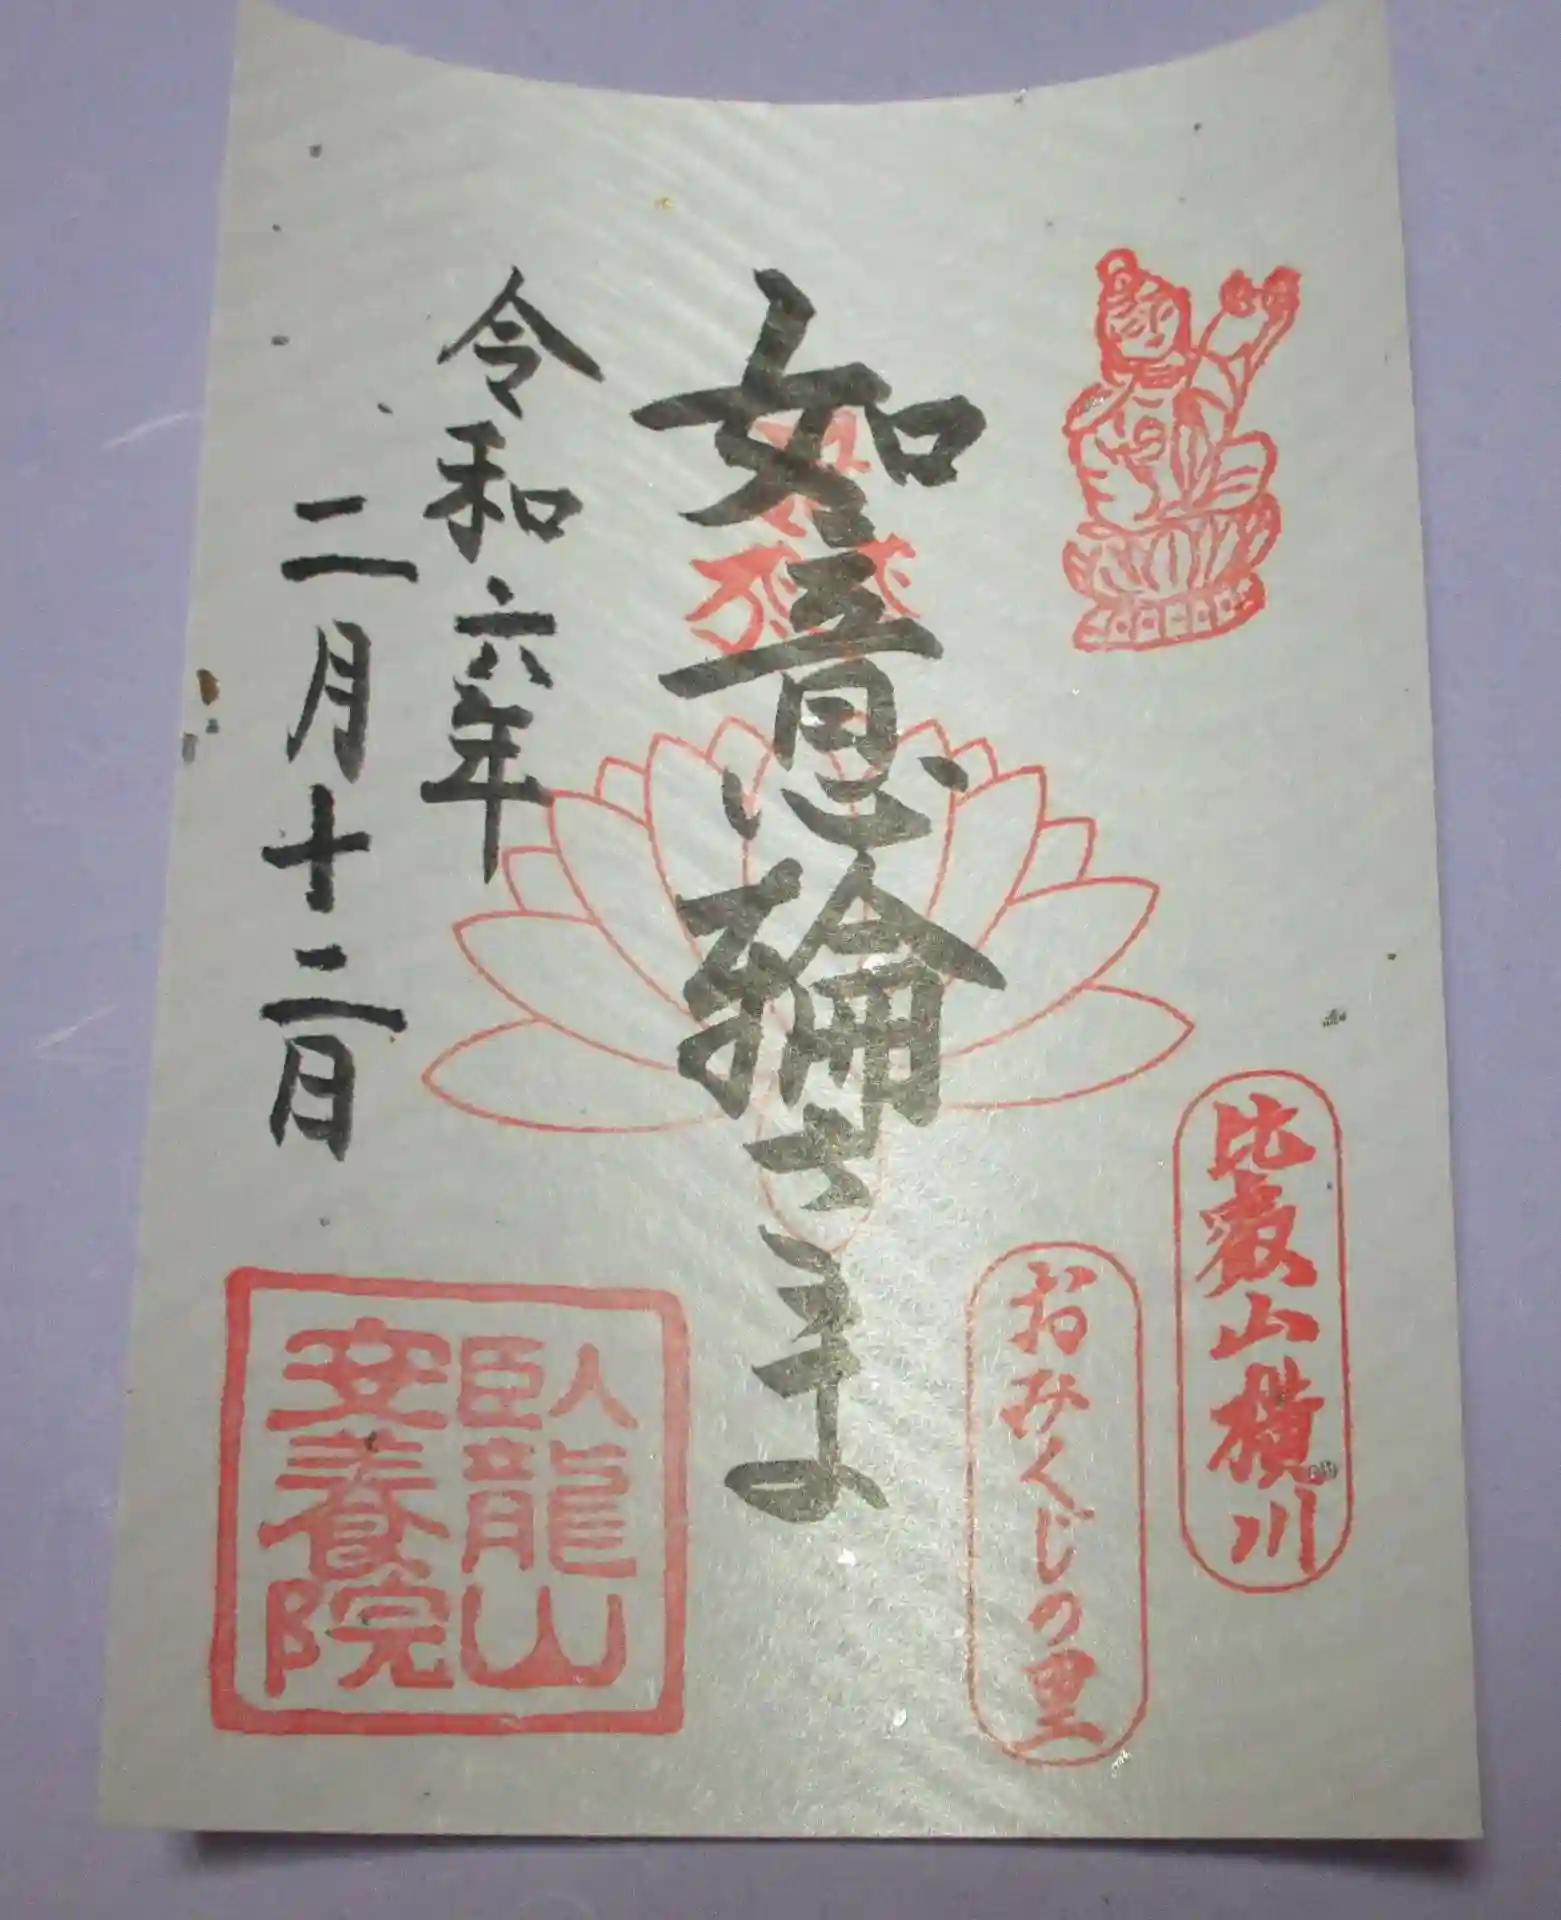 比叡山横川
おみくじの里
如意輪さま
令和六年
二月十二日
臥龍山
安養院